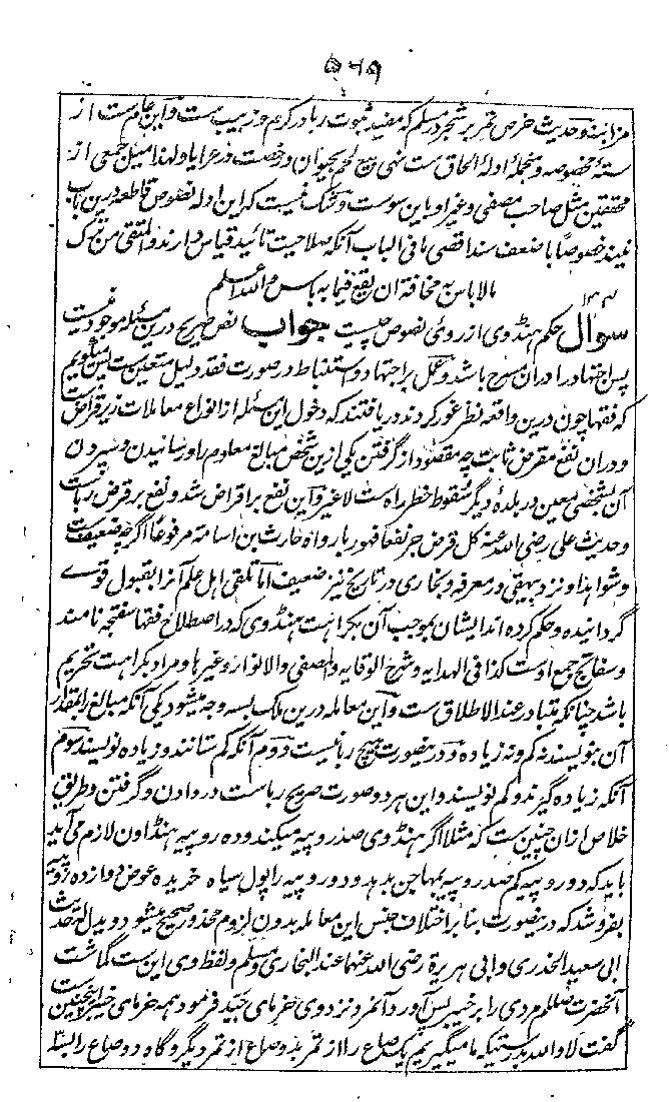 ۵۶۹
مزابنه و حدیث خرص تمر بر شجر در مسلم که مفید ثبوت ربا در کرم و زبیب ست و این عام ست از
سته مخصوصه و منجمله ادله الحاق ست نهی بیع لحم بحیوان و رخصت در عرایا و لهذا میل جمعی از
محققین مثل صاحب مصفی و غیر او باین سوست و شک نیست که این ادله نصوص قاطعه درین باب
نیند خصوصاً با ضعف سند اقصی ما فی الباب آنکه صلاحیت تائید قیاس دارند و المتقی من ترک
مالا باس به مخافة ان یقع فیما به باس و الله اعلم
سوال حکم هنڈوی از روئی نصوص چیست جواب نص صریح درین مسئله موجود نیست
پس اجتهاد را در ان مسرح باشد و عمل بر اجتهاد و استنباط در صورت فقد دلیل متعین ست پس میگویم
که فقها چون درین واقعه نظر غور کردند دریافتند که دخول این مسئله از انواع معاملات زیر قراض ست
و دران نفع مقرض ثابت چه مقصود از گرفتن یکی ازین شخص مبالغ معلوم را و رسانیدن و سپردن
آن بشخصی معین در بلده دیگر سقوط خطر راه ست لا غیر و این نفع بر اقراض شد و نفع بر قرض رباست
و حدیث علی رضی الله عنه کل قرض جر نفعا فهو ربا رواه حارث بن اسامة مرفوعاً اگرچه ضعیف ست
و شواهد او نزد بیهقی در معرفه و بخاری در تاریخ نیز ضعیف اما تلقی اهل علم آنرا بقبول قوی
گردانیده و حکم کرده اند ایشان بموجب آن بکراهت هنڈوی که در اصطلاح فقها سفتجه نامند
و سفاتج جمع اوست کذا فی الهدایه و شرح الوقایه و المصفی و الانوار و غیرها و مراد بکراهت تحریم
باشد چنانکه متبادر عند الاطلاق ست و این معامله درین ملک بسه وجه میشود یکی آنکه مبالغ را بمقدار
آن بنویسند نه کم و نه زیاده و درینصورت هیچ ربا نیست دوم آنکه کم ستانند و زیاده نویسند سوم
آنکه زیاده گیرند و کم نویسند و این هر دو صورت صریح رباست در دادن و گرفتن و طریق
خلاص ازان چنین ست که مثلا اگر هنڈوی صد روپیه میکند و ده روپیه هنڈاون لازم می آید
باید که دو روپیه کم صد روپیه بمهاجن بدهد و دو روپیه را پول سیاه خریده عوض دوازده روپیه
بفروشد که درینصورت بنا بر اختلاف جنس این معامله بدون لزوم محذور صحیح میشود و یدل له حدیث
ابی سعید الخدری و ابی هریرة رضی الله عنهما عند البخاری و مسلم و لفظ وی این ست گماشت
آنحضرت صللم مردی را بر خیبر پس آورد آنمرد نزد وی خرمای جید فرمود همه خرمای خیبر اینچنین ست
گفت لا و الله بدرستیکه ما میگیریم یک صاع را از تمر بدو صاع از تمر دیگر و گاه دو صاع را بسه